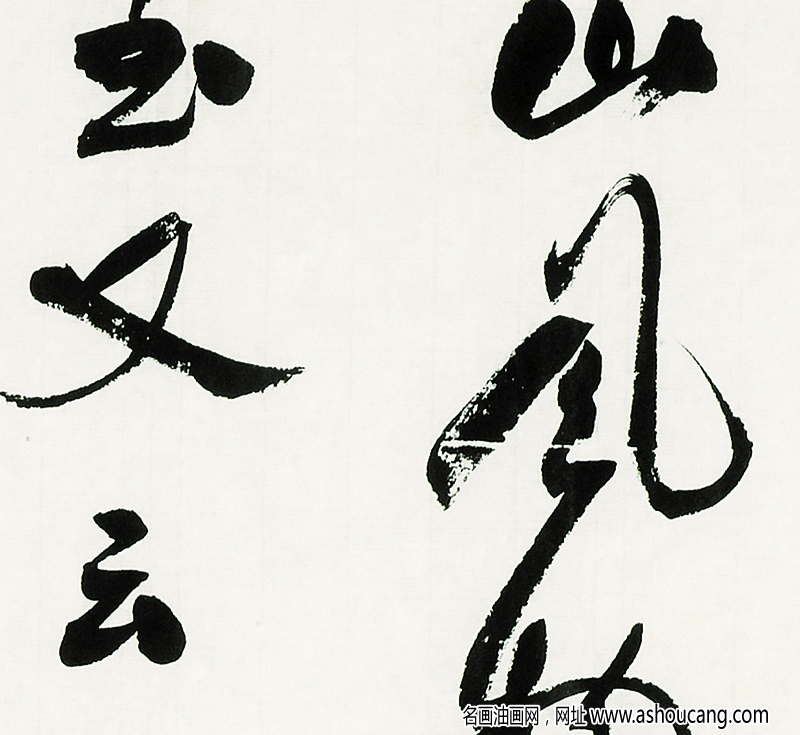 山風
又云
名画油画网，网址 www.ashoucang.com